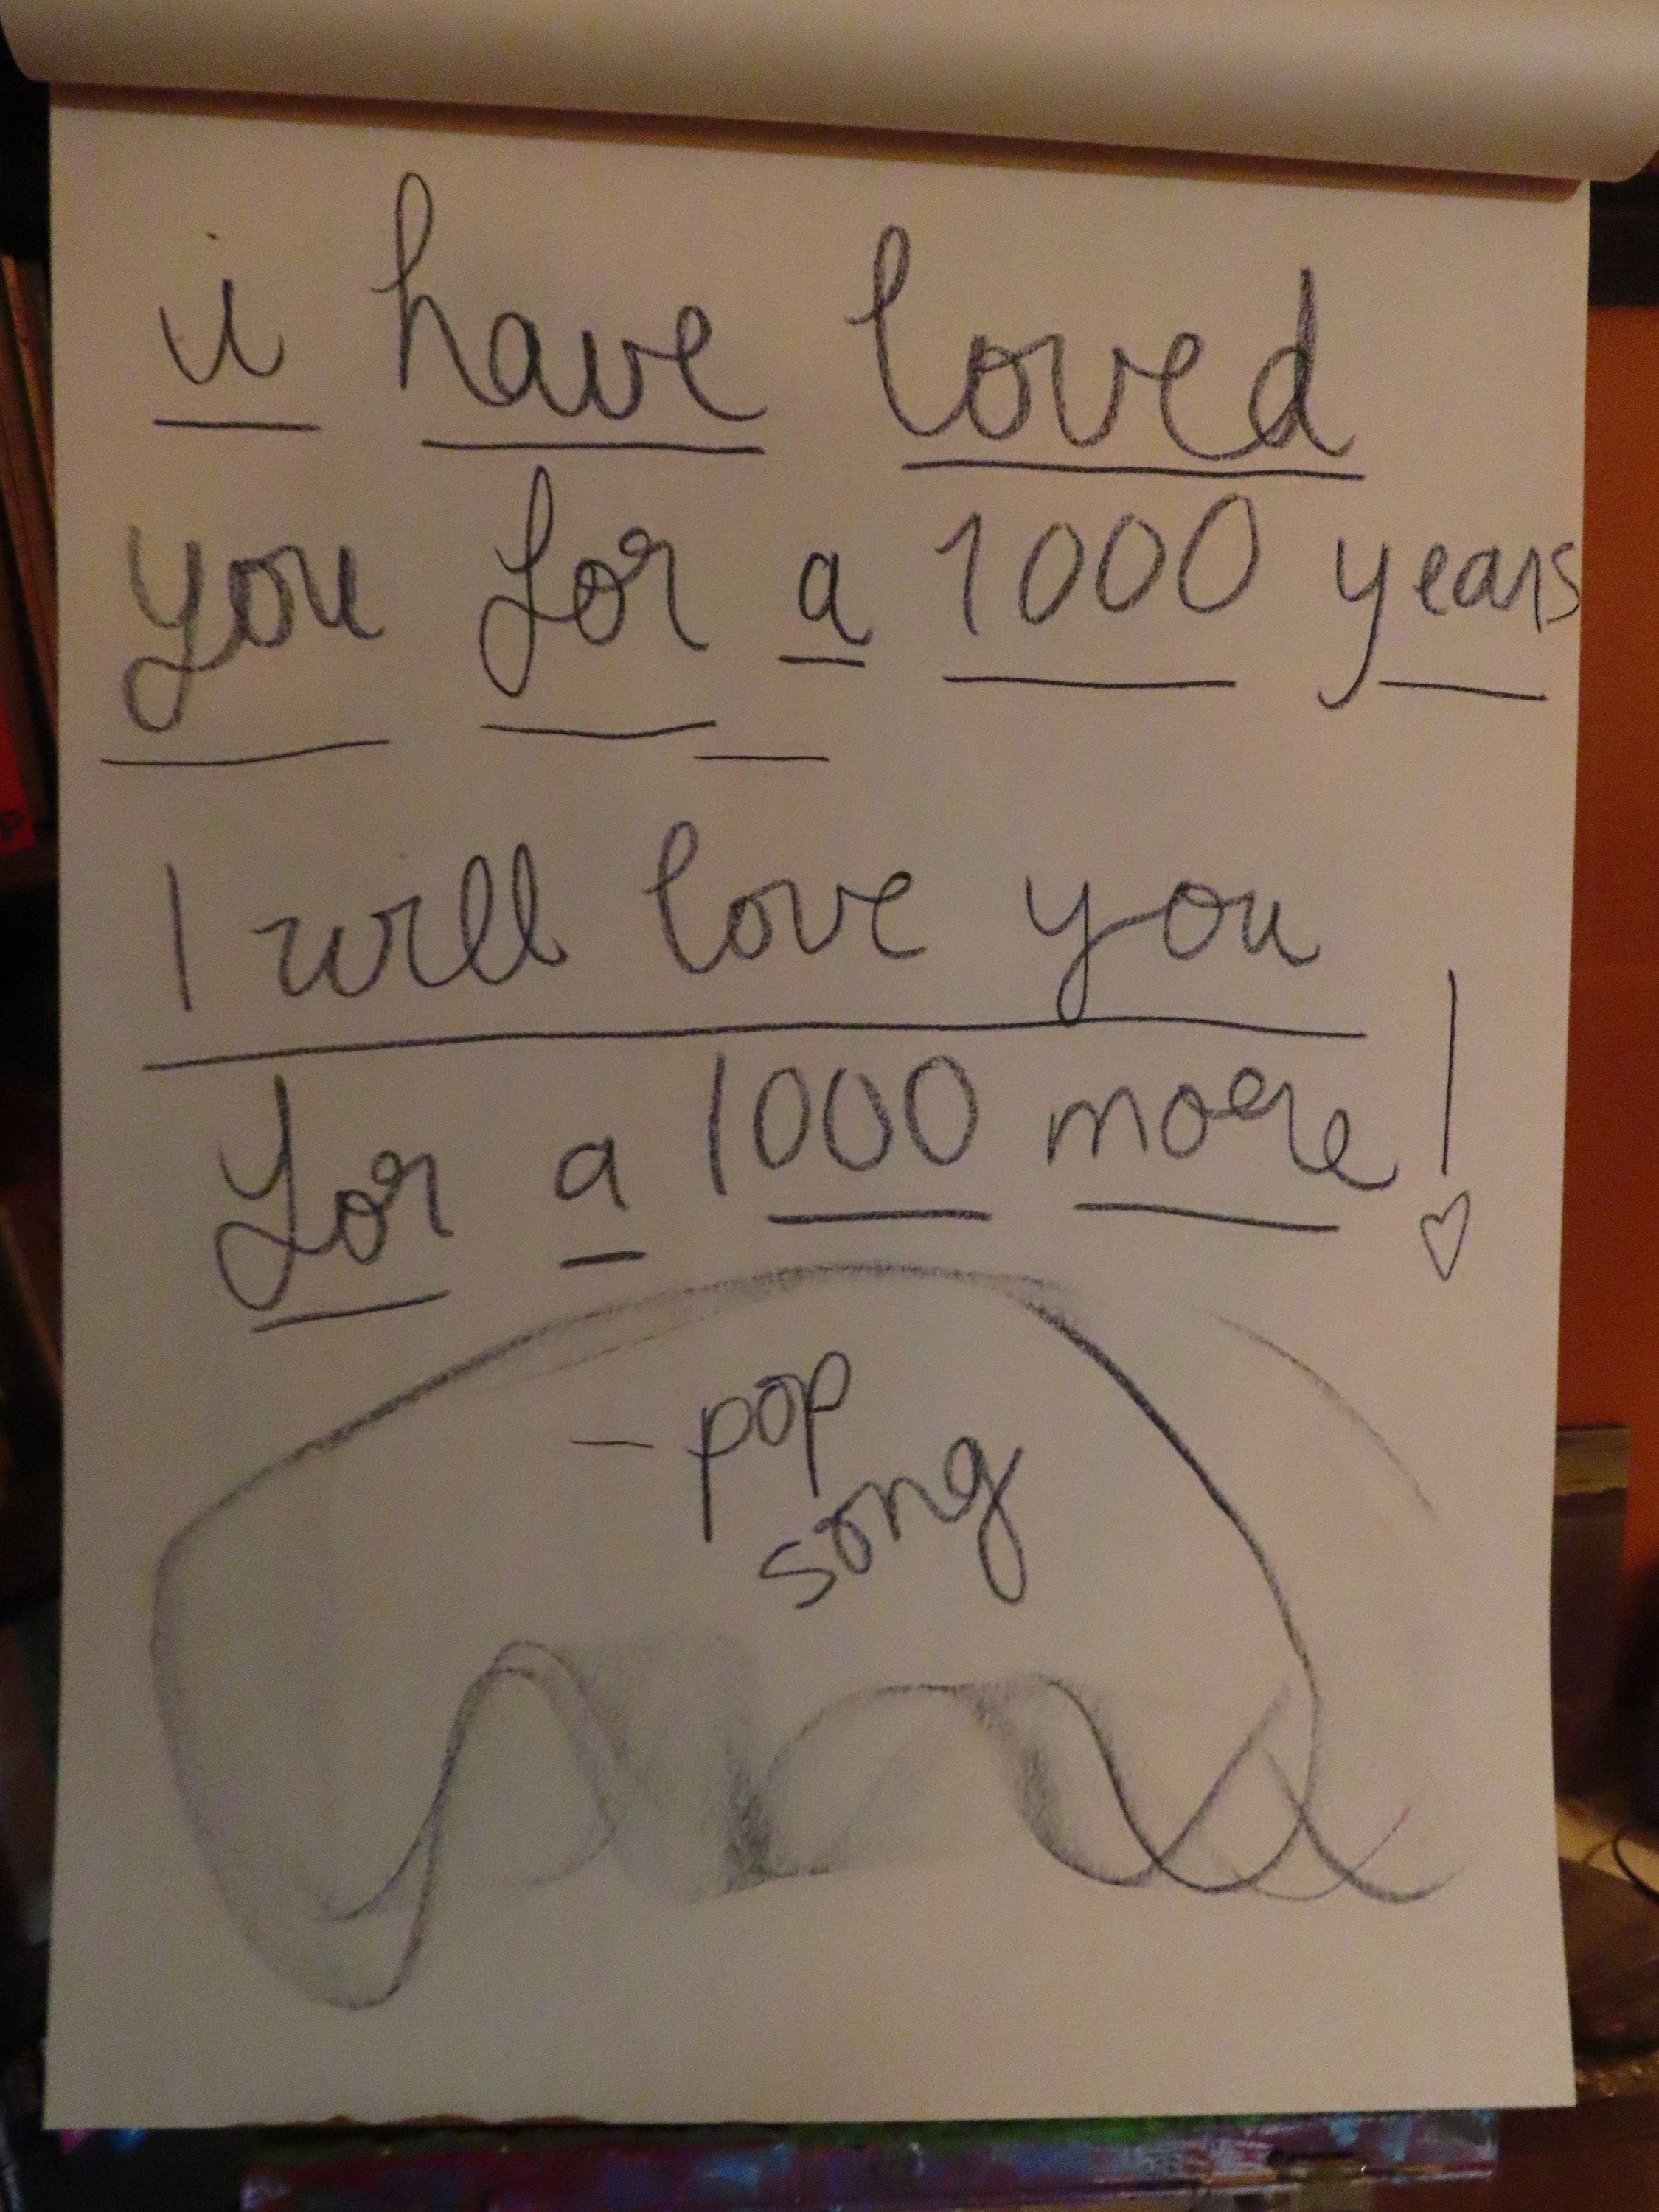 i have loved
you for a 1000 years
I will love you
for a 1000 more!
- pop
song